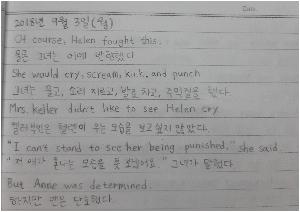 Date.
2018년 9월 3일 (월)
Of course, Helen fought this.
물론 그녀는 이에 반항했다
She would cry, scream, kick, and punch
그녀는 울고, 소리 지르고, 발로 차고, 주먹질을 했다.
Mrs. Keller didn't like to see Helen cry.
켈러부인은 헬렌이 우는 모습을 보고싶지 않았다.
"I can't stand to see her being punished," she said.
"저 애가 혼나는 모습을 못 보겠어요." 그녀가 말했다.
But Anne was determined.
하지만 앤은 단호했다.